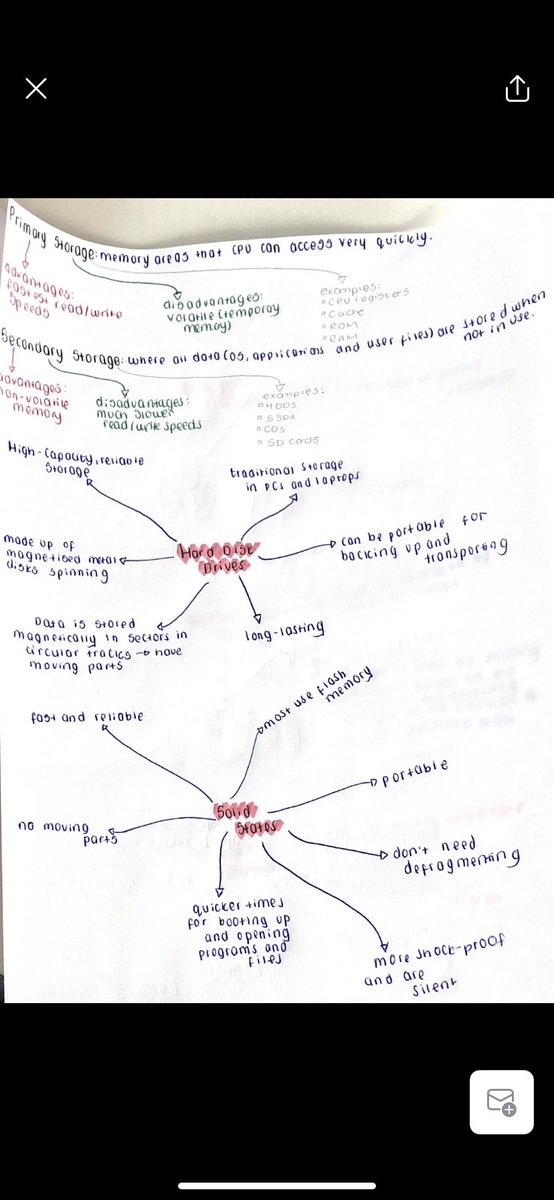 Primary Storage: memory areas that CPU can access very quickly.
advantages:
fastest read/write
speeds
disadvantages:
volatile (temporay
memory)
examples:
° CPU registers
° Cache
° ROM
° RAM
Secondary Storage: where all data (OS, applications and user files) are stored when
not in use.
advantages:
non-volatile
memory
disadvantages:
much slower
read/write speeds
examples:
° HDDS
° SSDS
° CDS
° SD cards
High-capacity, reliable
storage
traditional storage
in PCs and laptops
made up of
magnetised metal
disks spinning
Hard Disk
Drives
can be portable for
backing up and
transporting
Data is stored
magnetically in sectors in
circular tracks → have
moving parts
long-lasting
fast and reliable
most use flash
memory
Solid
States
portable
no moving
parts
don't need
defragmenting
quicker times
for booting up
and opening
programs and
files
more shock-proof
and are
silent